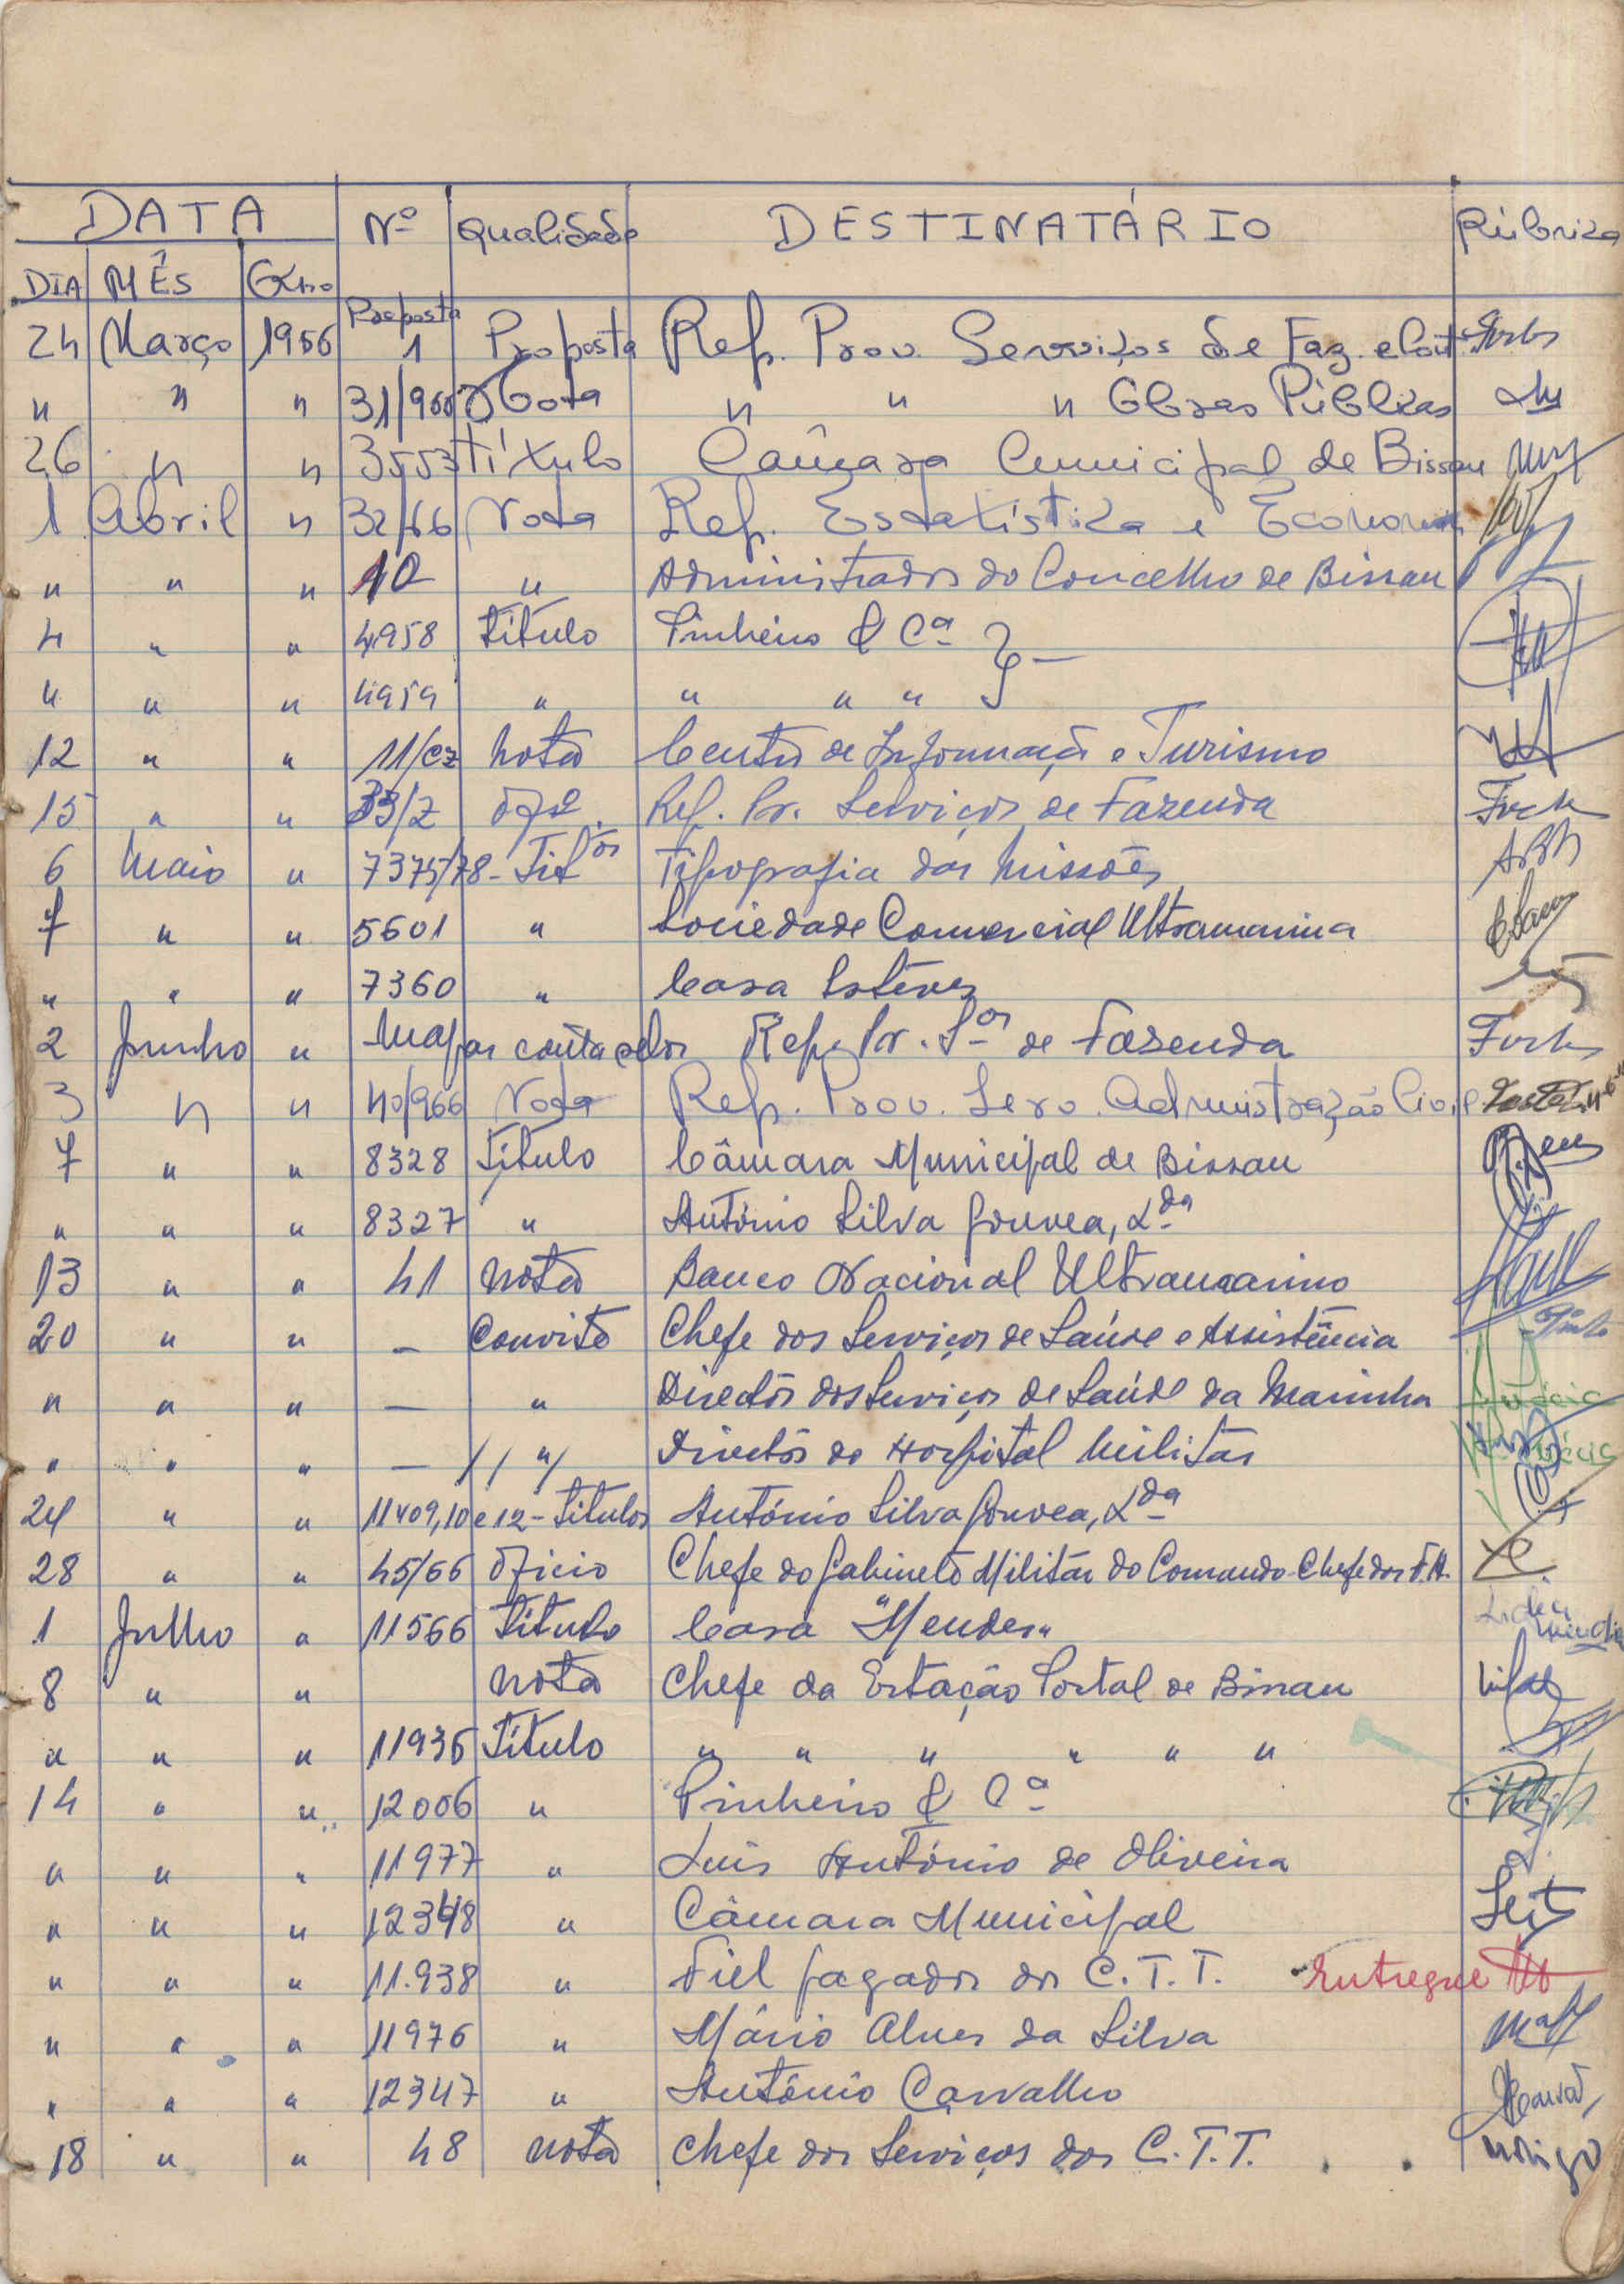 DATA Nº Qualidade DESTINATÁRIO Rúbrica
DIA MÊS Ano
24 Março 1966 Proposta 1 Proposta Rep. Prov. Serviços de Faz. e Cont.
" " " 31/966 Nota " " " Obras Públicas
26 " " 3553 Título Câmara Municipal de Bissau
1 Abril " 32/66 Nota Rep. Estatística e Economia
" " " 10 " Administrador do Concelho de Bissau
4 " " 4958 Título Pinheiro & Cª
" " " 4959 " " " "
12 " " 11/CZ Nota Centro de Informação e Turismo
15 " " 33/Z Ofº. Rep. Pr. Serviços de Fazenda
6 Maio " 7375/78 - Titos Tipografia das Missões
7 " " 5601 " Sociedade Comercial Ultramarina
" " " 7360 " Casa Esteves
2 Junho " Mapas contas Rep. Pr. Sos de Fazenda
3 " " 40/966 Nota Rep. Prov. Serv. Administração Civil
7 " " 8328 Título Câmara Municipal de Bissau
" " " 8327 " António Silva Gouvea, Lda
13 " " 41 Nota Banco Nacional Ultramarino
20 " " — Convite Chefe dos Serviços de Saúde e Assistência
" " " — " Director dos Serviços de Saúde da Marinha
" " " — " Director do Hospital Militar
24 " " 11409,10 e 12 - Títulos António Silva Gouvea, Lda
28 " " 45/66 Ofício Chefe do Gabinete Militar do Comando-Chefe das F.A.
1 Julho " 11566 Título Casa "Mendes"
8 " " Nota Chefe da Estação Postal de Bissau
" " " 11936 Título " " " " " "
14 " " 12006 " Pinheiro & Cª
" " " 11977 " Luis António de Oliveira
" " " 12348 " Câmara Municipal
" " " 11.938 " Fiel pagador dos C.T.T. Entregue
" " " 11976 " Mário Alves da Silva
" " " 12347 " António Carvalho
18 " " 48 Nota Chefe dos Serviços dos C.T.T.